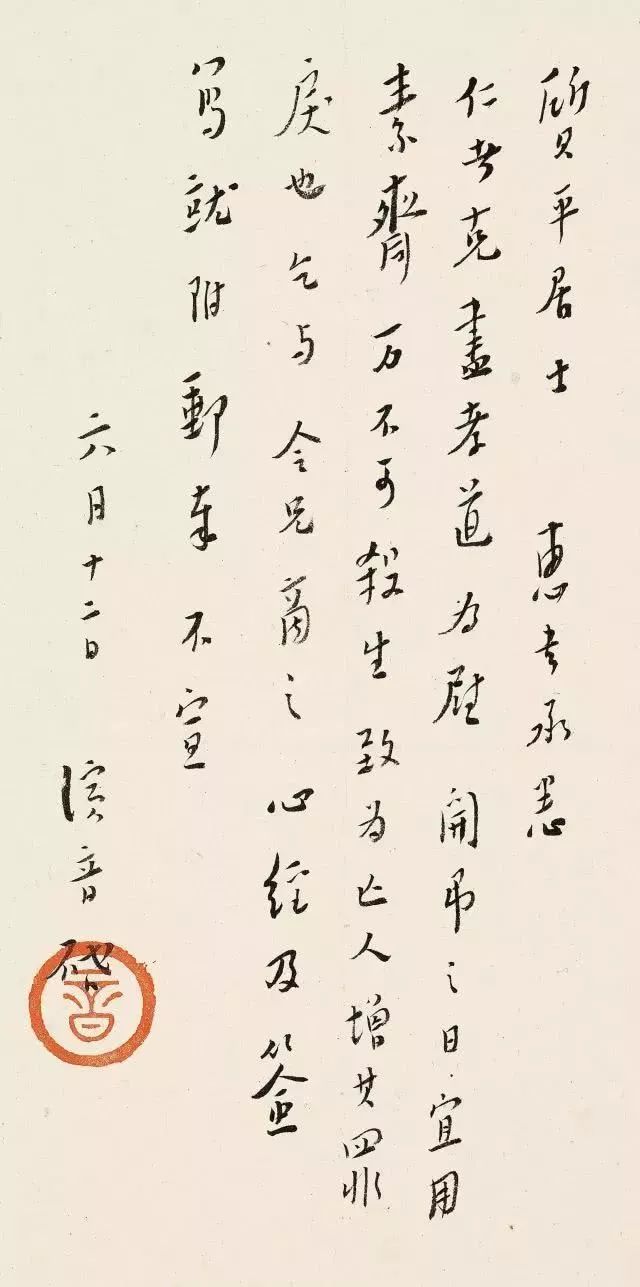 質平居士 惠書承悉
仁者克盡孝道為慰 開弔之日宜用
素齋万不可殺生致為亡人增其罪
戾也乞与令兄商之 心經及簽
寫就附郵奉 不宣
六月十二日 演音啓
音